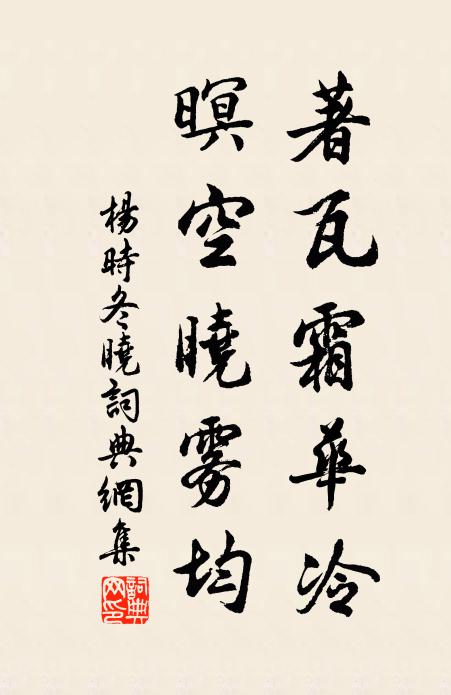 著瓦霜華冷
暝空曉雾均
楊時冬曉詞典網集
詞典网印